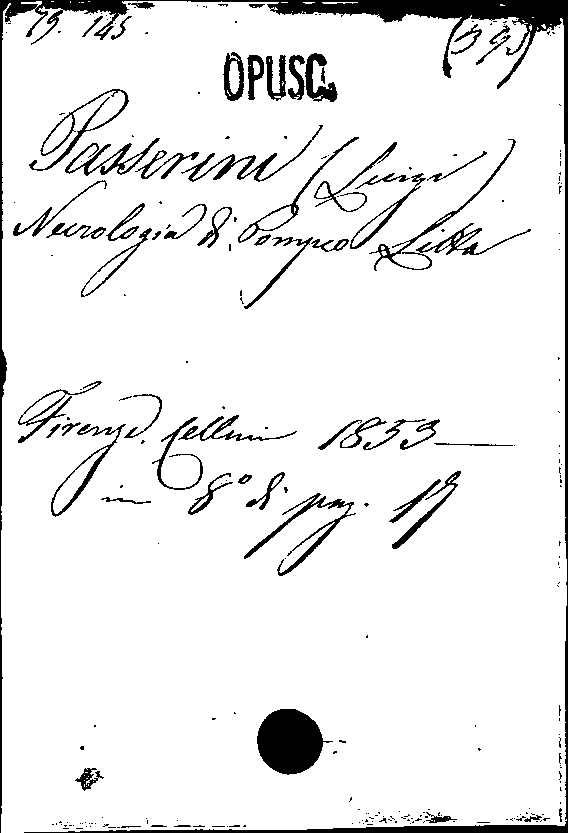 79. 145.
(395)
OPUSC.
Passerini (Luigi)
Necrologia di Pompeo Litta
Firenze. Cellini 1853
in 8° di pag. 17